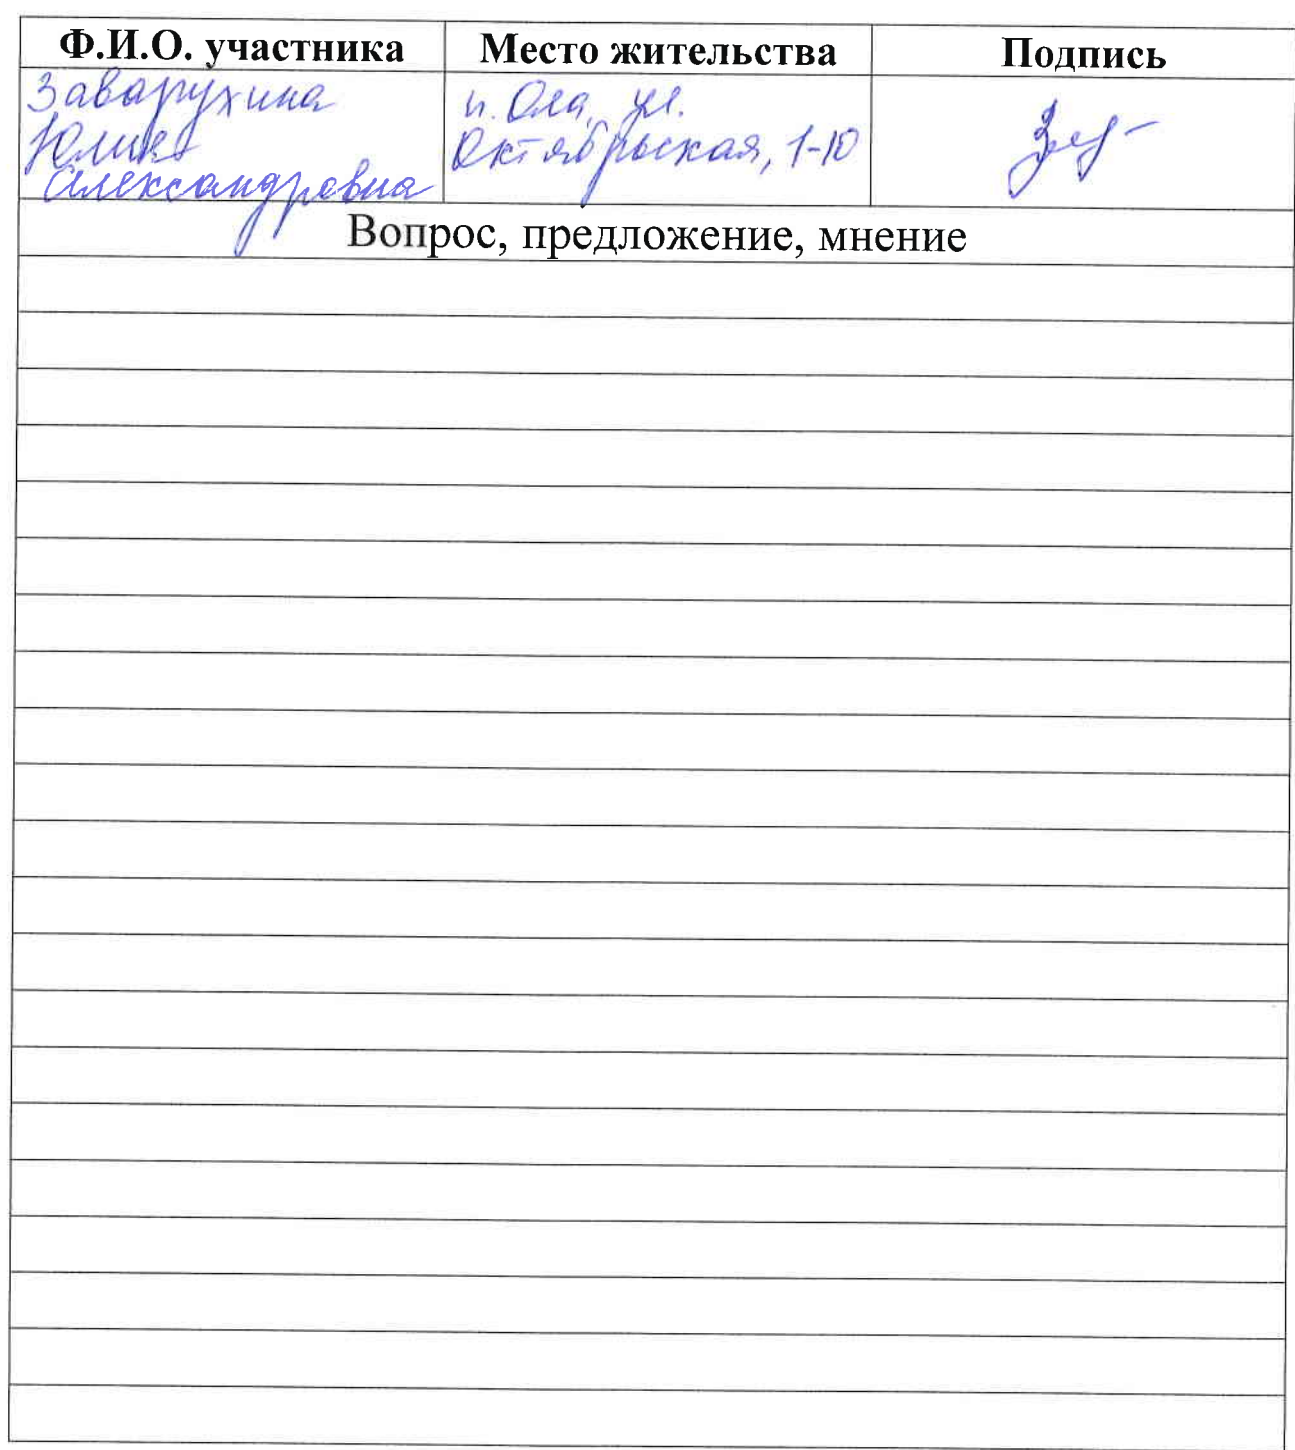 Ф.И.О. участника Место жительства Подпись
Заварухина
Юлия
Александровна
п. Ола, ул.
Октябрьская, 1-10
Вопрос, предложение, мнение